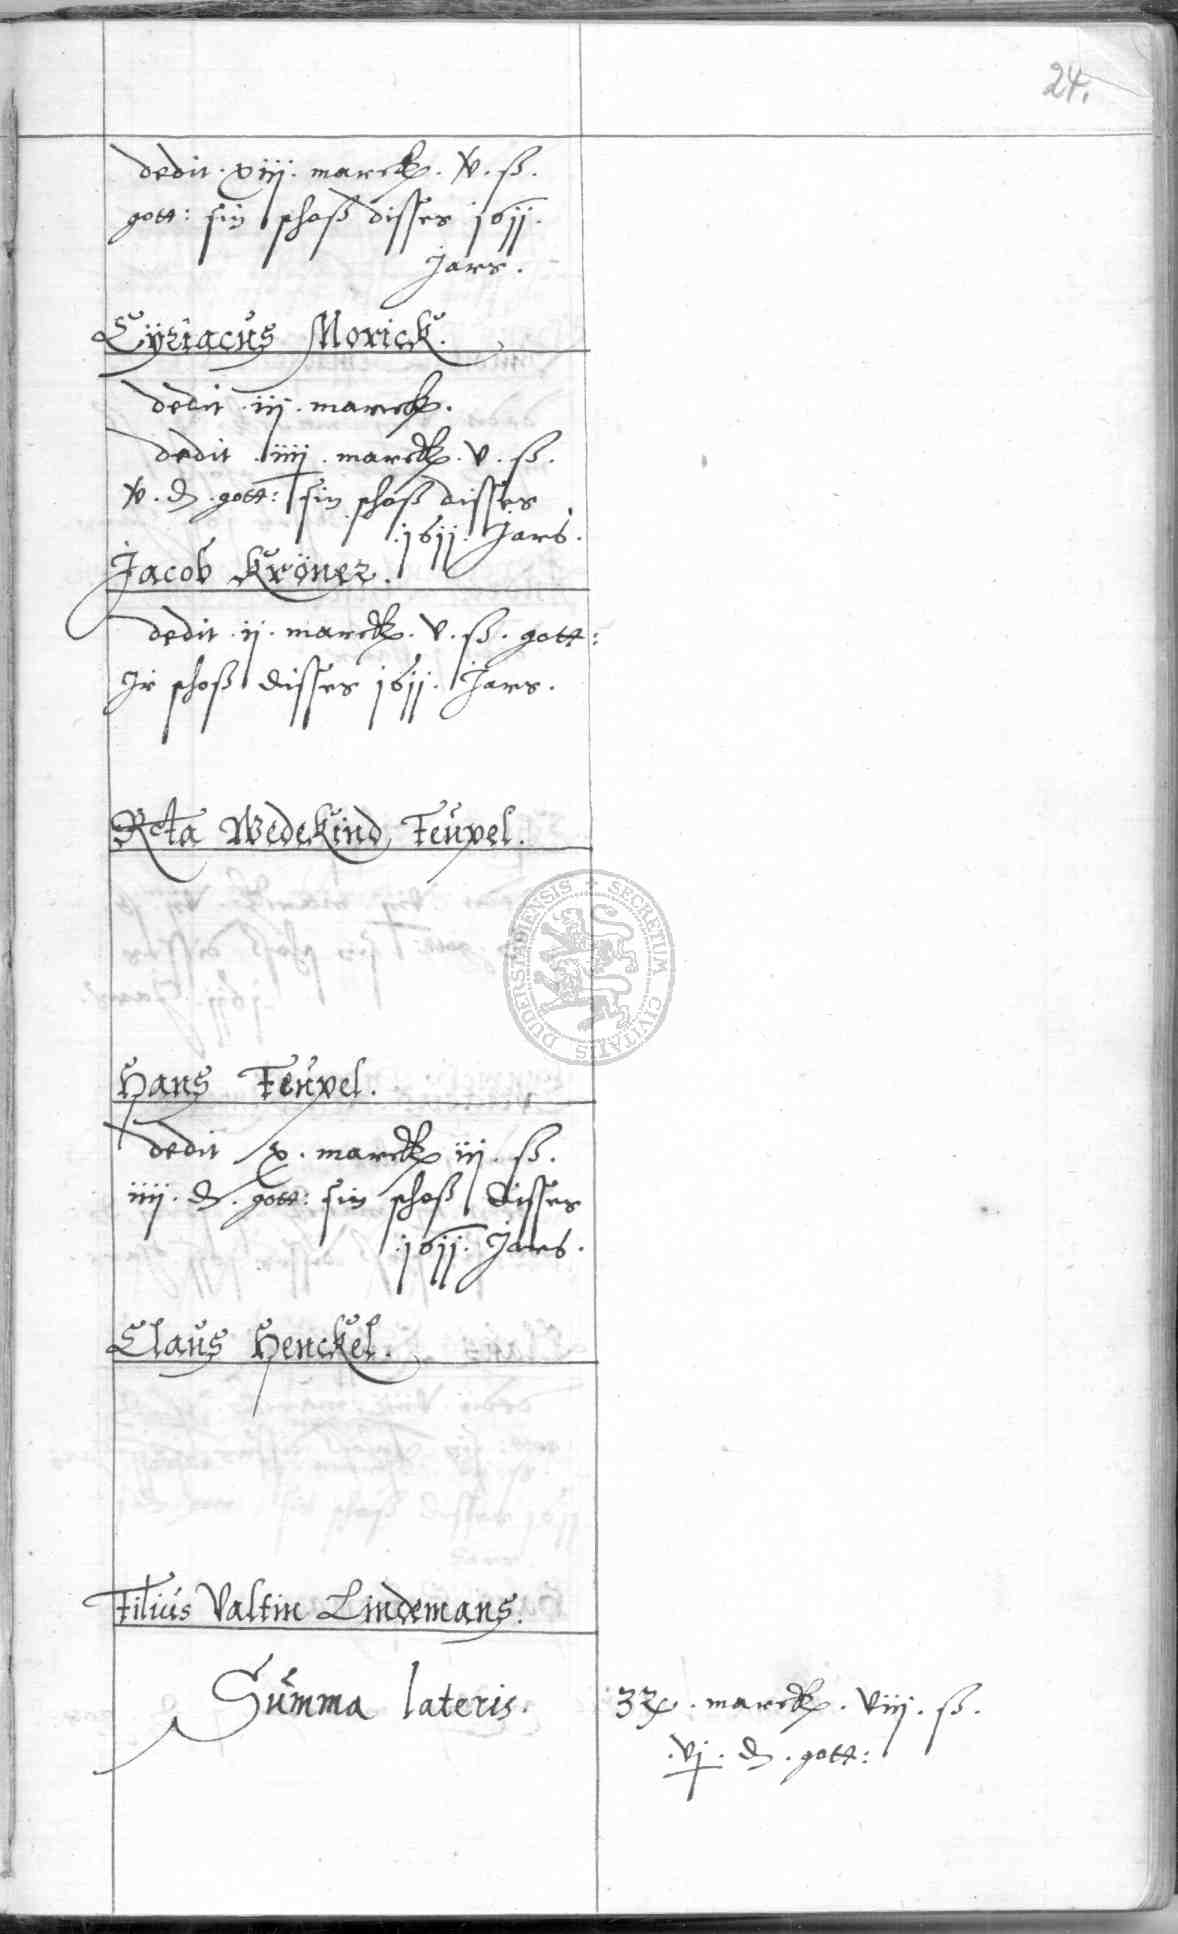 24.
dedit . xiij . marck . v . ß .
gott: sin schoß disses 1611 .
Jars .
Cyriacus Morick .
dedit . iij . marck .
dedit . iiij . marck . v . ß .
v . d . gott: sin schoß disses
. 1611 . Jars .
Jacob Kröner .
dedit . ij . marck . v . ß . gott:
Jr schoß disses 1611 . Jars .
Rcta Wedekind Teupel .
Hans Teupel .
dedit x . marck iij . ß .
iiij . d . gott: sin schoß disses
. 1611 . Jars .
Claus Henckel .
Filius Valtin Lindemans .
Summa lateris .
marck . viij . ß .
. vj . d . gott:
SECRETUM CIVITATIS DUDERSTADIENSIS